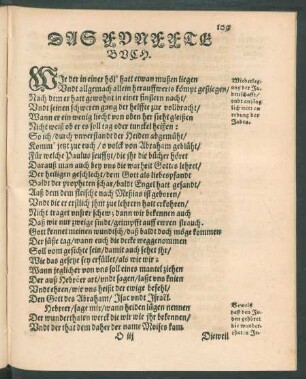 109
DAS FVNFFTE
BVCH.
WJe der in einer höl' hatt etwan mußen liegen
Vndt allgemach allein herauffwerts kömpt gestiegen/
Nach dem er hatt gewohnt in einer finstern nacht/
Vndt seinen schweren gang der helffte zur vollbracht/
Wann er ein wenig liecht von oben her sieht gleißen
Nicht weiß ob er es soll tag oder tunckel heißen:
So ich/ durch vnverstandt der Heiden abgemüht/
Komm' jetzt zue euch/ o volck von Abraham geblüth/
Für welche Paulus seufftzt/ die jhr die bücher höret
Darauß man auch bey vns die warheit Gottes lehret/
Der heiligen geschlecht/ dem Gott als liebespfandt
Baldt der propheten schar/ baldt Engel hatt gesandt/
Auß dem dem fleische nach Messias ist geboren/
Vndt die er erstlich jhm zur lehrern hatt erkohren/
Nicht traget vnsere schew; dann wir bekennen auch
Daß wir nur zweige sindt/ geimpfft auff ewren strauch.
Gott kennet meinen wundsch/ daß baldt doch möge kommen
Der süße tag/ wann euch die decke weggenommen
Soll vom gesichte sein/ damit auch sehet jhr/
Wie das gesetze sey erfüllet/ als wie wir:
Wann jeglicher von vns soll eines mantel ziehen
Der auß Hebreer art/ vndt sagen/ laßt vns knien
Vndt ehren/ wie vns heißt der ewige befehl/
Den Gott des Abraham/ Jsac vndt Jsraël.
Hebreer/ sage mir/ wann helden lügen nennen
Der wunderthaten werck die wir wie jhr bekennen/
Vndt der that dem daher der name Moises kam
O iij
Dieweil
Wiederleg-
ung der Ju-
denschafft/
Juden.
Beweiß